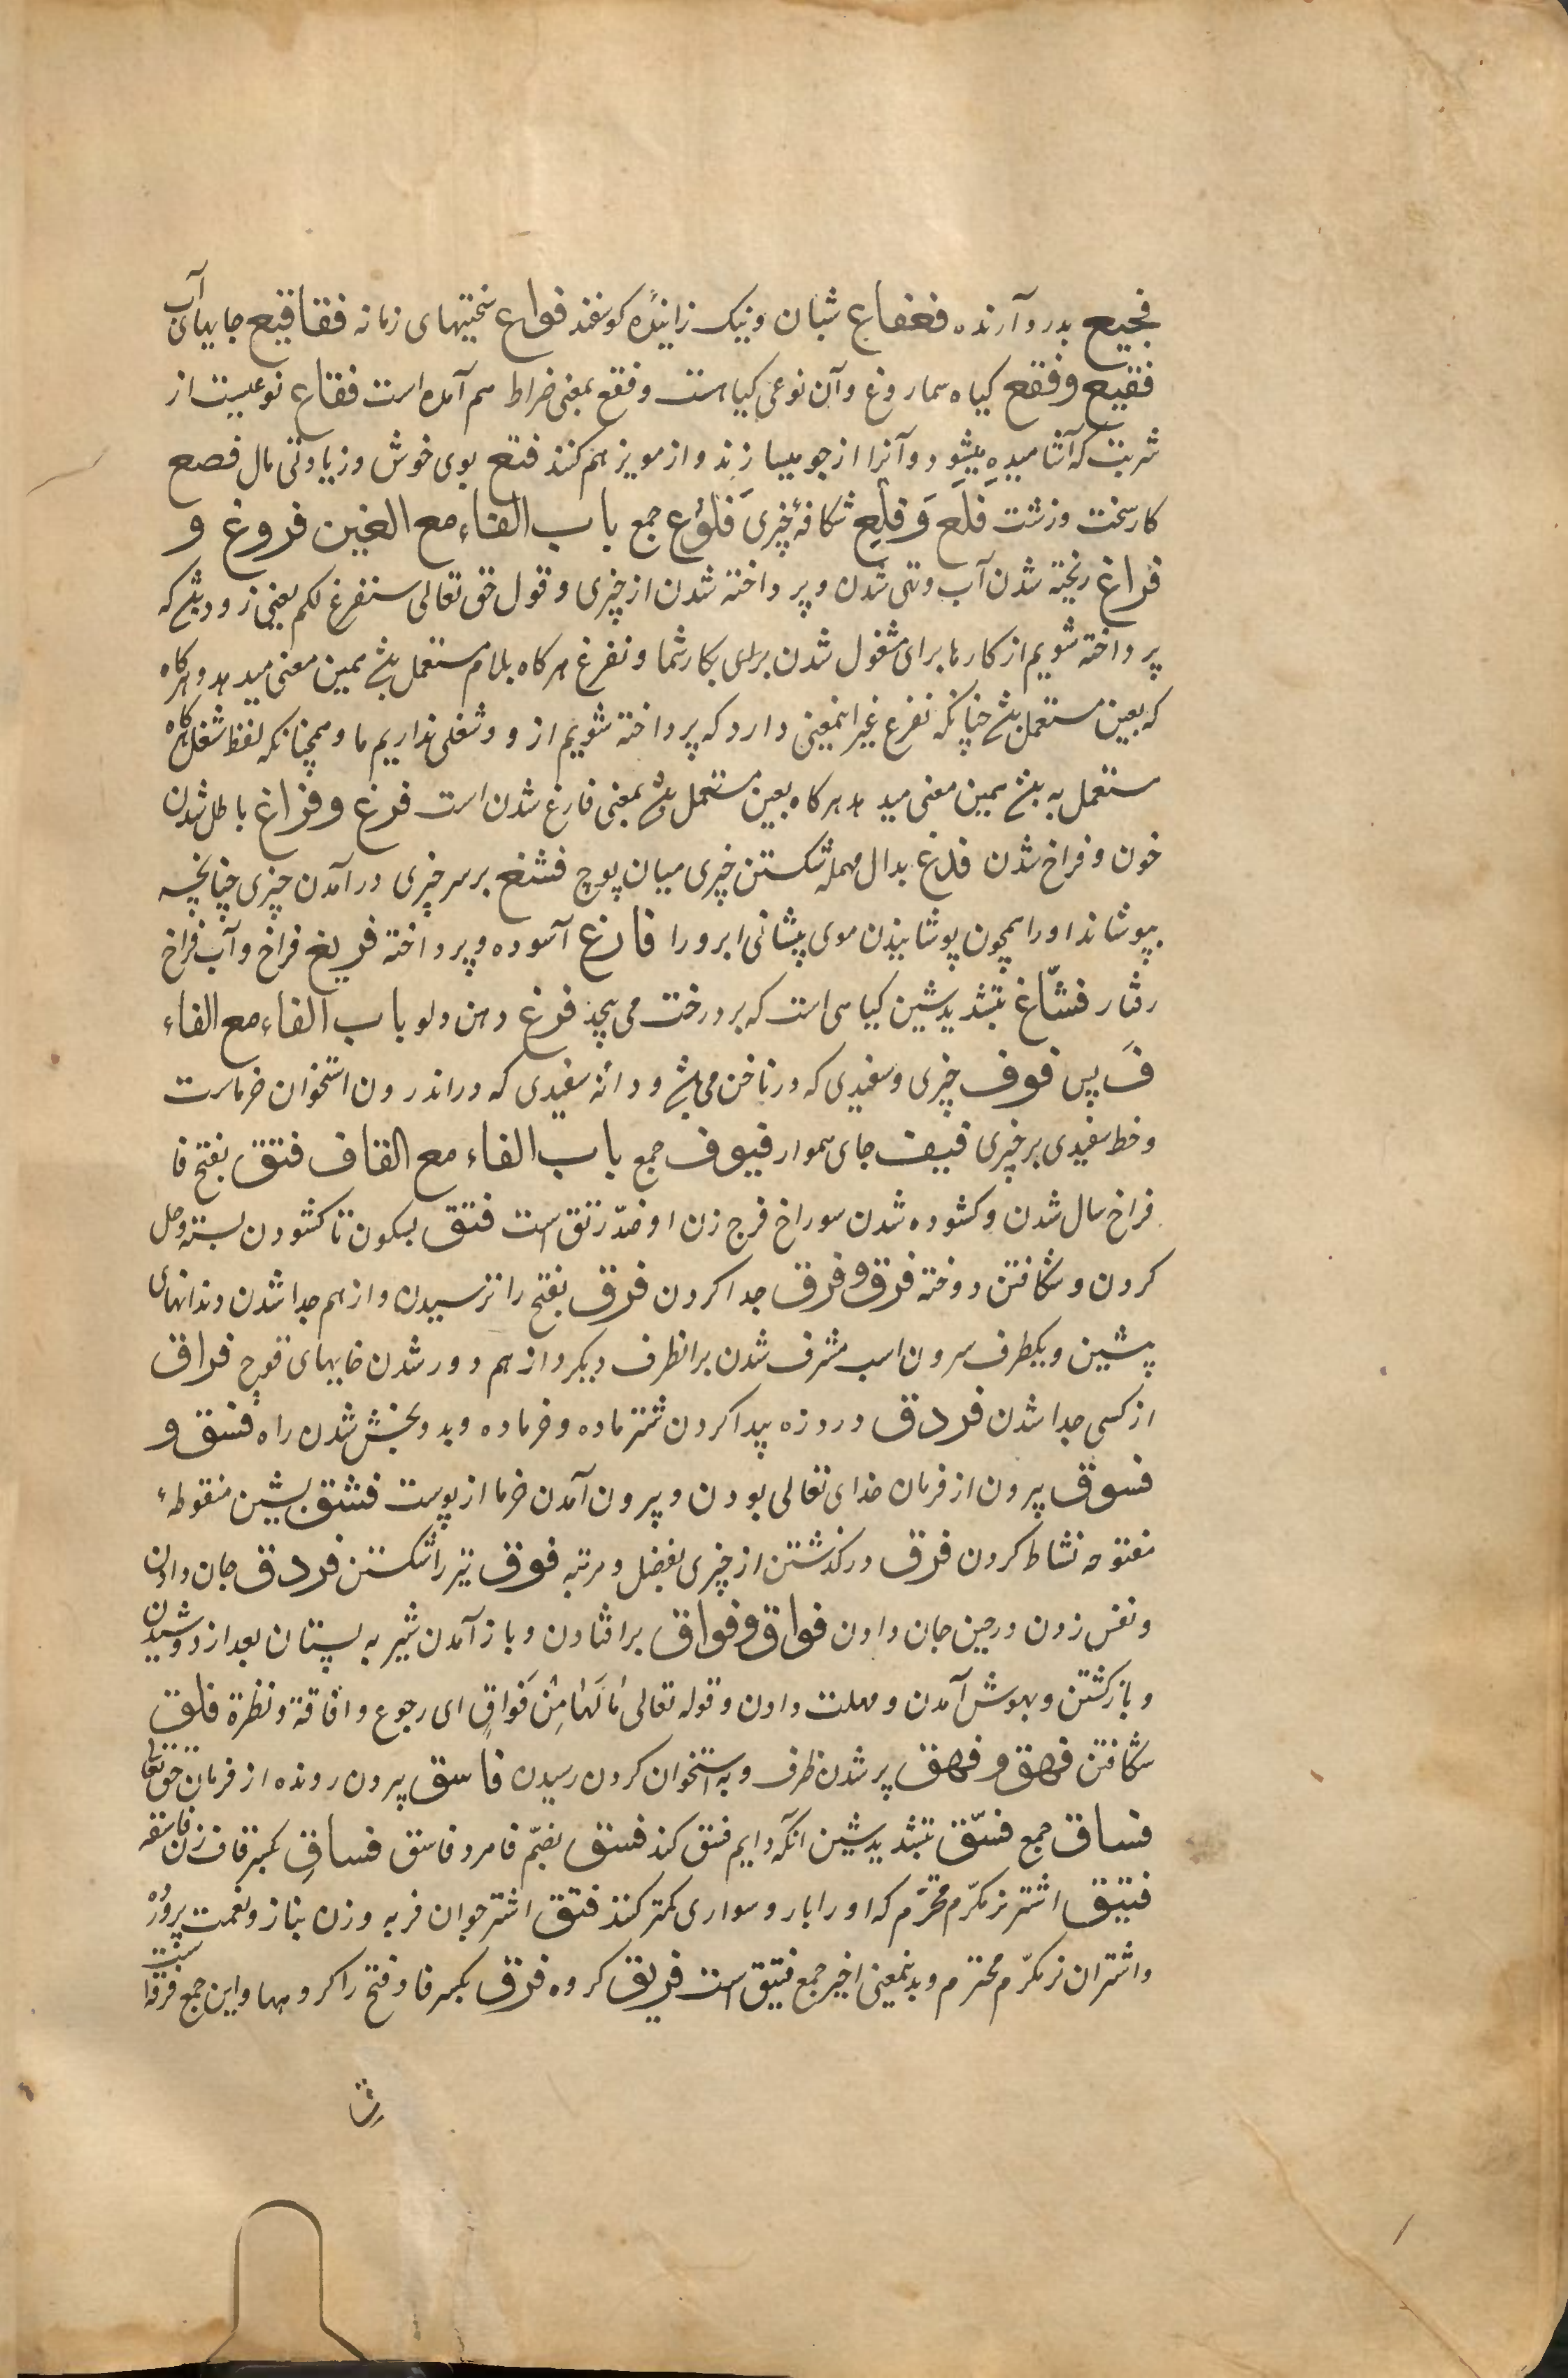 فجیع بدرد آرنده فعفاع شبان و نیک زاینده کوسفند فواع سختیهای زمانه فقاقیع جابهای آب
فقیع و فقع کیاه سماروغ و آن نوعی کیاهست و فقع بمعنی ضراط هم آمده است فقاع نوعیست از
شربت که آشامیده میشود و آنرا از جو میسازند و از مویز هم کنند فنع بوی خوش و زیادتی مال فصع
کار سخت و زشت فَلع وَ فلِع شکافهٔ چیزی فلوع جمع باب الفاء مع الغین فروغ و
فراغ ریخته شدن آب و تهی شدن و پرداخته شدن از چیزی و قول حق تعالی سنفرغ لکم یعنی زود باشد که
پرداخته شویم از کارها برای مشغول شدن برای بکار شما و نفرغ هرکاه بلام مستعمل باشد همین معنی میدهد و هرکاه
که بعین مستعمل باشد چنانکه نفرغ غیر اینمعنی دارد که پرداخته شویم از و و شغلی نداریم ما و همچنانکه لفظ شغل هرکاه
مستعمل به باشد همین معنی میدهد هرکاه بعین مستعمل باشد بمعنی فارغ شدن است فرغ و فراغ باطل شدن
خون و فراخ شدن فدغ بدال مهمله شکستن چیزی میان پوچ فشغ بر سر چیزی در آمدن چیزی چنانچه
بپوشاند او را همچون پوشانیدن موی پیشانی ابرو را فارغ آسوده و پرداخته فریغ فراخ و آب فراخ
رفتار فشّاغ بتشدید شین کیاهی است که بر درخت می پیچد فرغ دهن دلو باب الفاء مع الفاء
فَ پس فوف چیزی و سفیدی که در ناخن می باشد و دانه سفیدی که در اندرون استخوان خرماست
و خط سفیدی بر چیزی فیف جای هموار فیوف جمع باب الفاء مع القاف فتق بفتح فا
فراخ سال شدن و کشوده شدن سوراخ فرج زن او ضدّ رتق است فتق بسکون تا کشودن بسته و حل
کردن و شکافتن دوخته فرق و فرق جدا کردن فرق بفتح را ترسیدن و از هم جدا شدن دندانهای
پیشین و یکطرف سرون اسب مشرف شدن بر انطرف دیکر و از هم دور شدن خایهای قوچ فراق
از کسی جدا شدن فردق درد زه پیدا کردن شتر ماده و خر ماده و بدو بخش شدن راه فسق و
فسوق بیرون از فرمان خدای تعالی بودن و بیرون آمدن خرما از پوست فشق بشین منقوطهٔ
مفتوحه نشاط کردن فرق درکذشتن از چیزی بفضل و مرتبه فوق تیر را شکستن فردق جان دادن
و نفس زدن در حین جان دادن فواق و فواق بر افتادن و باز آمدن شیر به پستان بعد از دوشیدن
و بازکشتن و بهوش آمدن و مهلت دادن و قوله تعالی مَا لَهَا مِنْ فَوَاقٍ ای رجوع و افاقة و نظرة فلق
شکافتن فهق و فهق پر شدن ظرف و به استخوان کردن رسیدن فاسق بیرون رونده از فرمان حق تعالی
فساق جمع فسّق بتشدید شین انکه دایم فسق کند فسق بضمّ فا مرد فاسق فساقِ بکسر قاف زن فاسقه
فنیق اشتر نر مکرّم محترّم که او را بار و سواری کمتر کنند فنق اشتر جوان فربه و زن بناز و نعمت پرورده
و اشتران نر مکرّم محترم و بدینمعنی اخیر جمع فنیق است فریق کروه فرق بکسر فا و فتح را کروهها و این جمع فرقه است